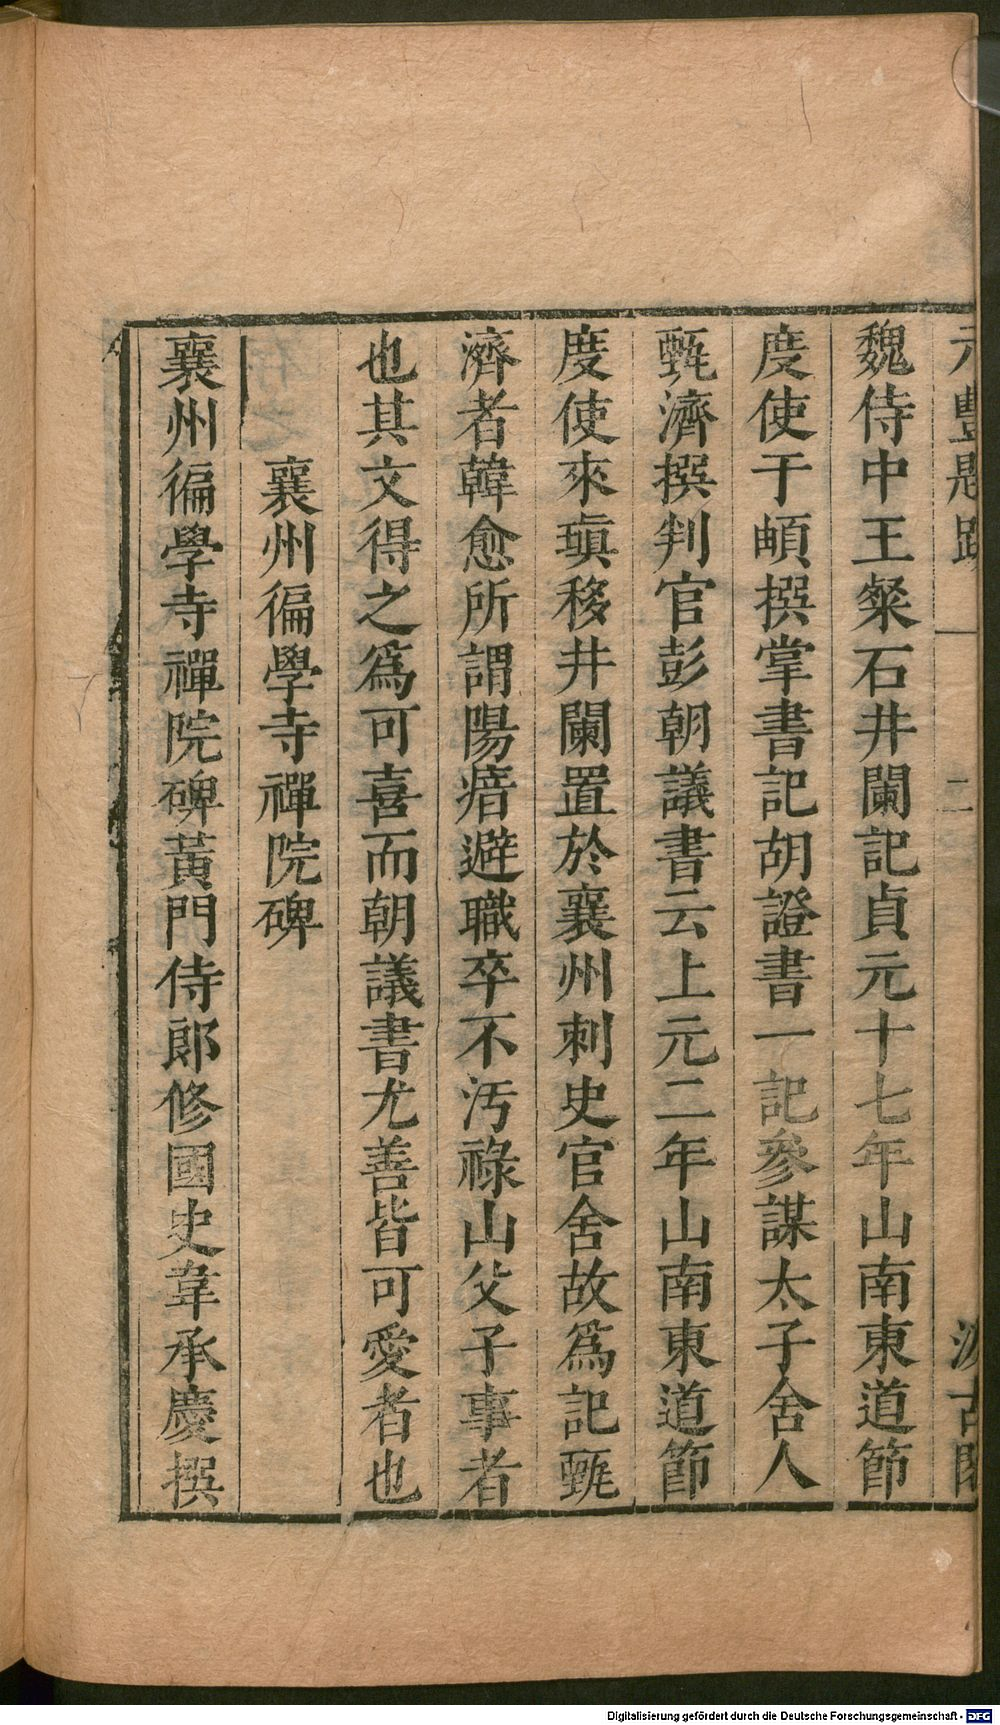 元豐題跋 二 汲古閣
魏侍中王粲石井闌記貞元十七年山南東道節
度使于頔撰掌書記胡證書一記參謀太子舍人
甄濟撰判官彭朝議書云上元二年山南東道節
度使來瑱移井闌置於襄州刺史官舍故爲記甄
濟者韓愈所謂陽瘖避職卒不汚祿山父子事者
也其文得之爲可喜而朝議書尤善皆可愛者也
襄州徧學寺禪院碑
襄州徧學寺禪院碑黃門侍郎修國史韋承慶撰
Digitalisierung gefördert durch die Deutsche Forschungsgemeinschaft - DFG